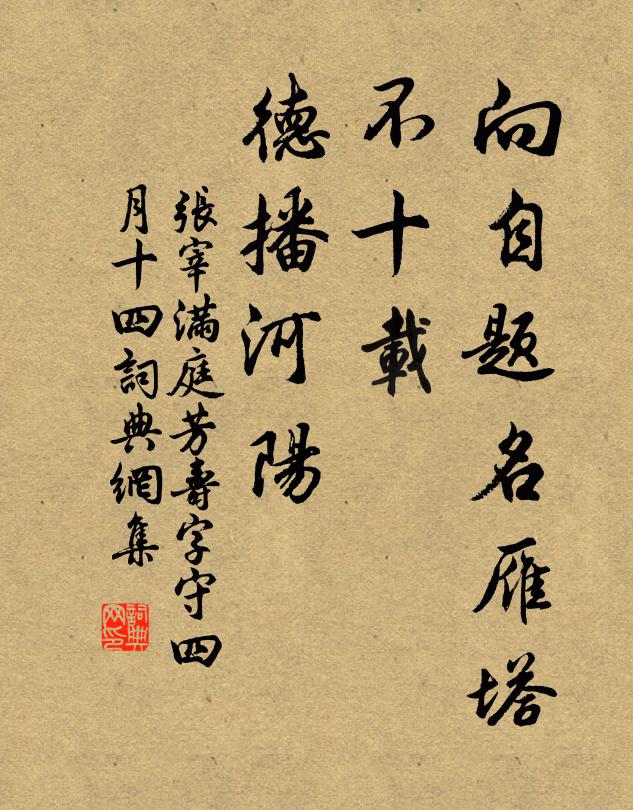 向自题名雁塔
不十載
德播河陽
張宰滿庭芳壽字守四
月十四詞典網集
詞典网印